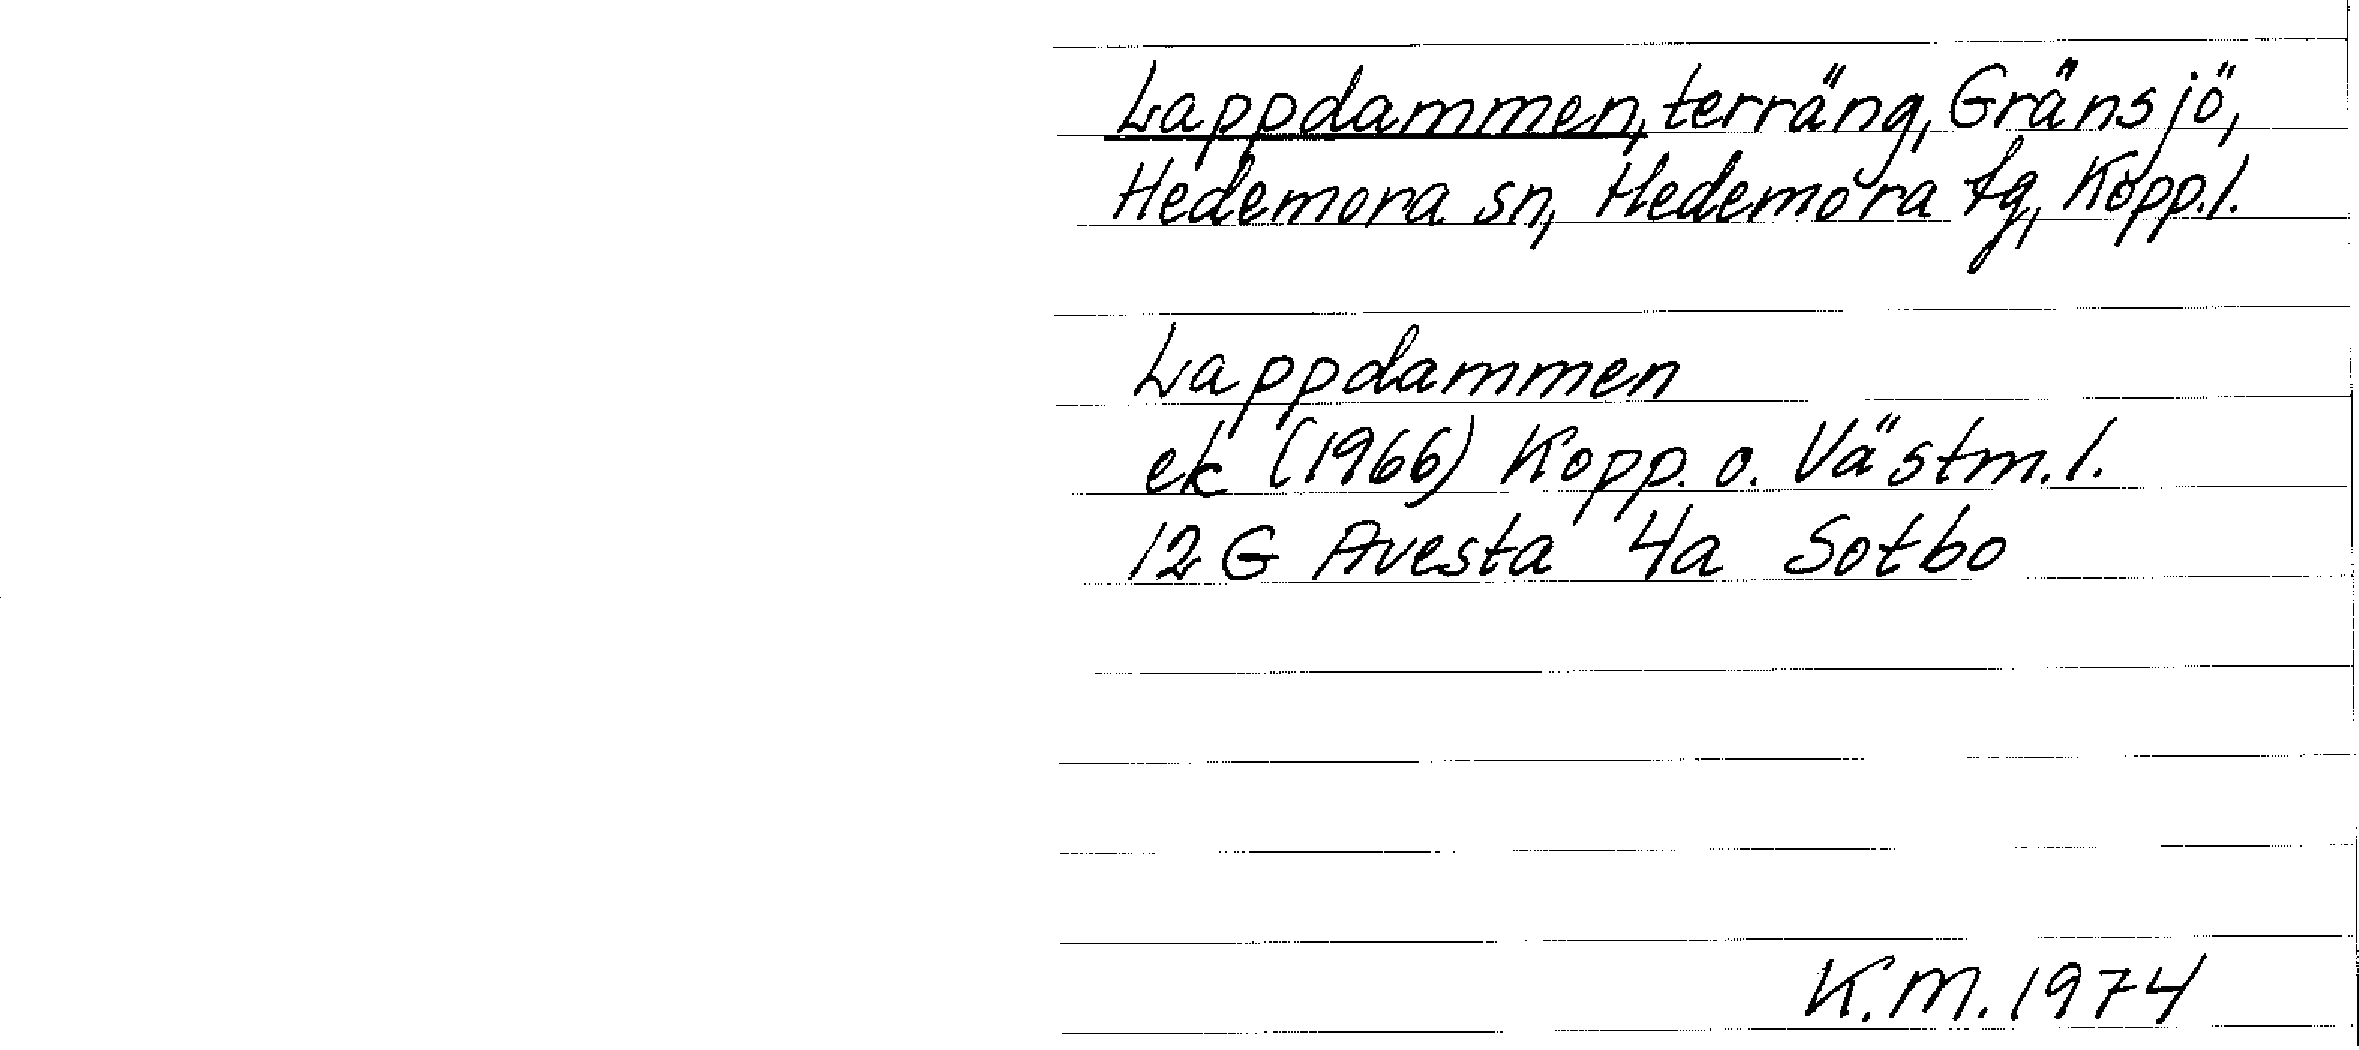 Lappdammen, terräng, Gränsjö,
Hedemora sn, Hedemora tg, Kopp. l.
Lappdammen
ek (1966) Kopp. o. Västm. l.
12 G Avesta 4a Sotbo
K.M. 1974